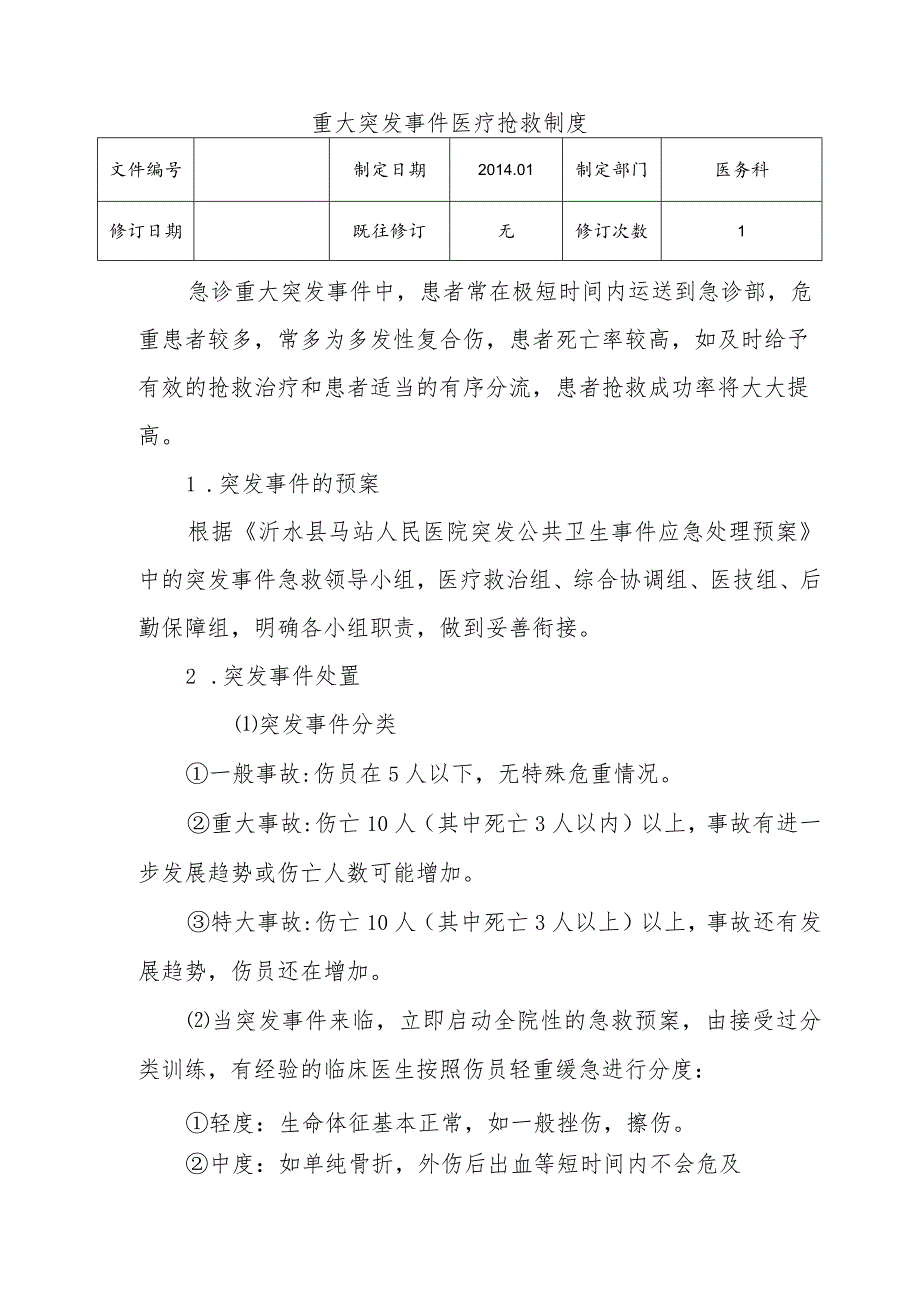 重大突发事件医疗抢救制度
文件编号 制定日期 2014.01 制定部门 医务科
修订日期 既往修订 无 修订次数 1
急诊重大突发事件中，患者常在极短时间内运送到急诊部，危
重患者较多，常多为多发性复合伤，患者死亡率较高，如及时给予
有效的抢救治疗和患者适当的有序分流，患者抢救成功率将大大提
高。
1 .突发事件的预案
根据《沂水县马站人民医院突发公共卫生事件应急处理预案》
中的突发事件急救领导小组，医疗救治组、综合协调组、医技组、后
勤保障组，明确各小组职责，做到妥善衔接。
2 .突发事件处置
⑴突发事件分类
①一般事故:伤员在5人以下，无特殊危重情况。
②重大事故:伤亡10人（其中死亡3人以内）以上，事故有进一
步发展趋势或伤亡人数可能增加。
③特大事故:伤亡10人（其中死亡3人以上）以上，事故还有发
展趋势，伤员还在增加。
⑵当突发事件来临，立即启动全院性的急救预案，由接受过分
类训练，有经验的临床医生按照伤员轻重缓急进行分度：
①轻度：生命体征基本正常，如一般挫伤，擦伤。
②中度：如单纯骨折，外伤后出血等短时间内不会危及